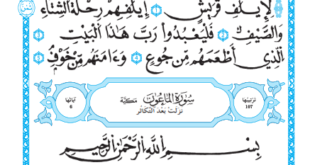 لِإِيلَٰفِ قُرَيْشٍ ١ إِۦلَٰفِهِمْ رِحْلَةَ ٱلشِّتَآءِ
وَٱلصَّيْفِ ٢ فَلْيَعْبُدُوا۟ رَبَّ هَٰذَا ٱلْبَيْتِ ٣
ٱلَّذِىٓ أَطْعَمَهُم مِّن جُوعٍ وَءَامَنَهُم مِّنْ خَوْفٍۭ ٤
ترتيبها ١٠٧ سُورَةُ المَاعُونِ مكيّة آياتها
نزلت بعد التكاثر
بِسْمِ ٱللَّهِ ٱلرَّحْمَٰنِ ٱلرَّحِيمِ